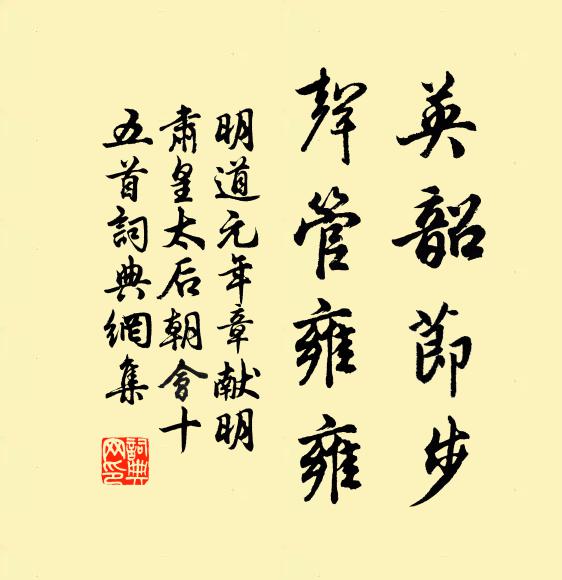 英韶節步
聲管雍雍
明道元年章献明
肅皇太后朝會十
五首詞典網集
詞典網印